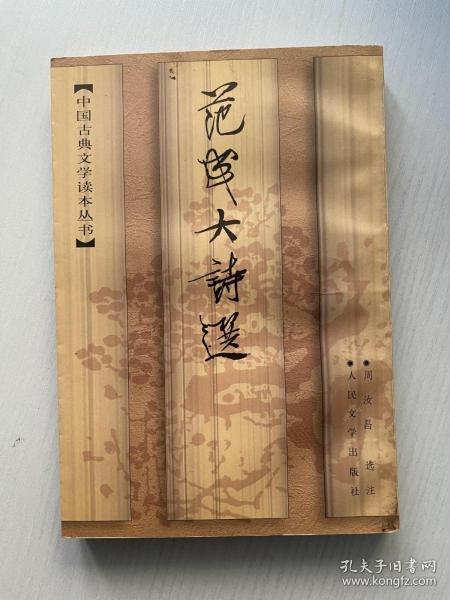 【中国古典文学读本丛书】
范成大詩選
●周汝昌 选注
●人民文学出版社
孔夫子旧书网
www.kongfz.com